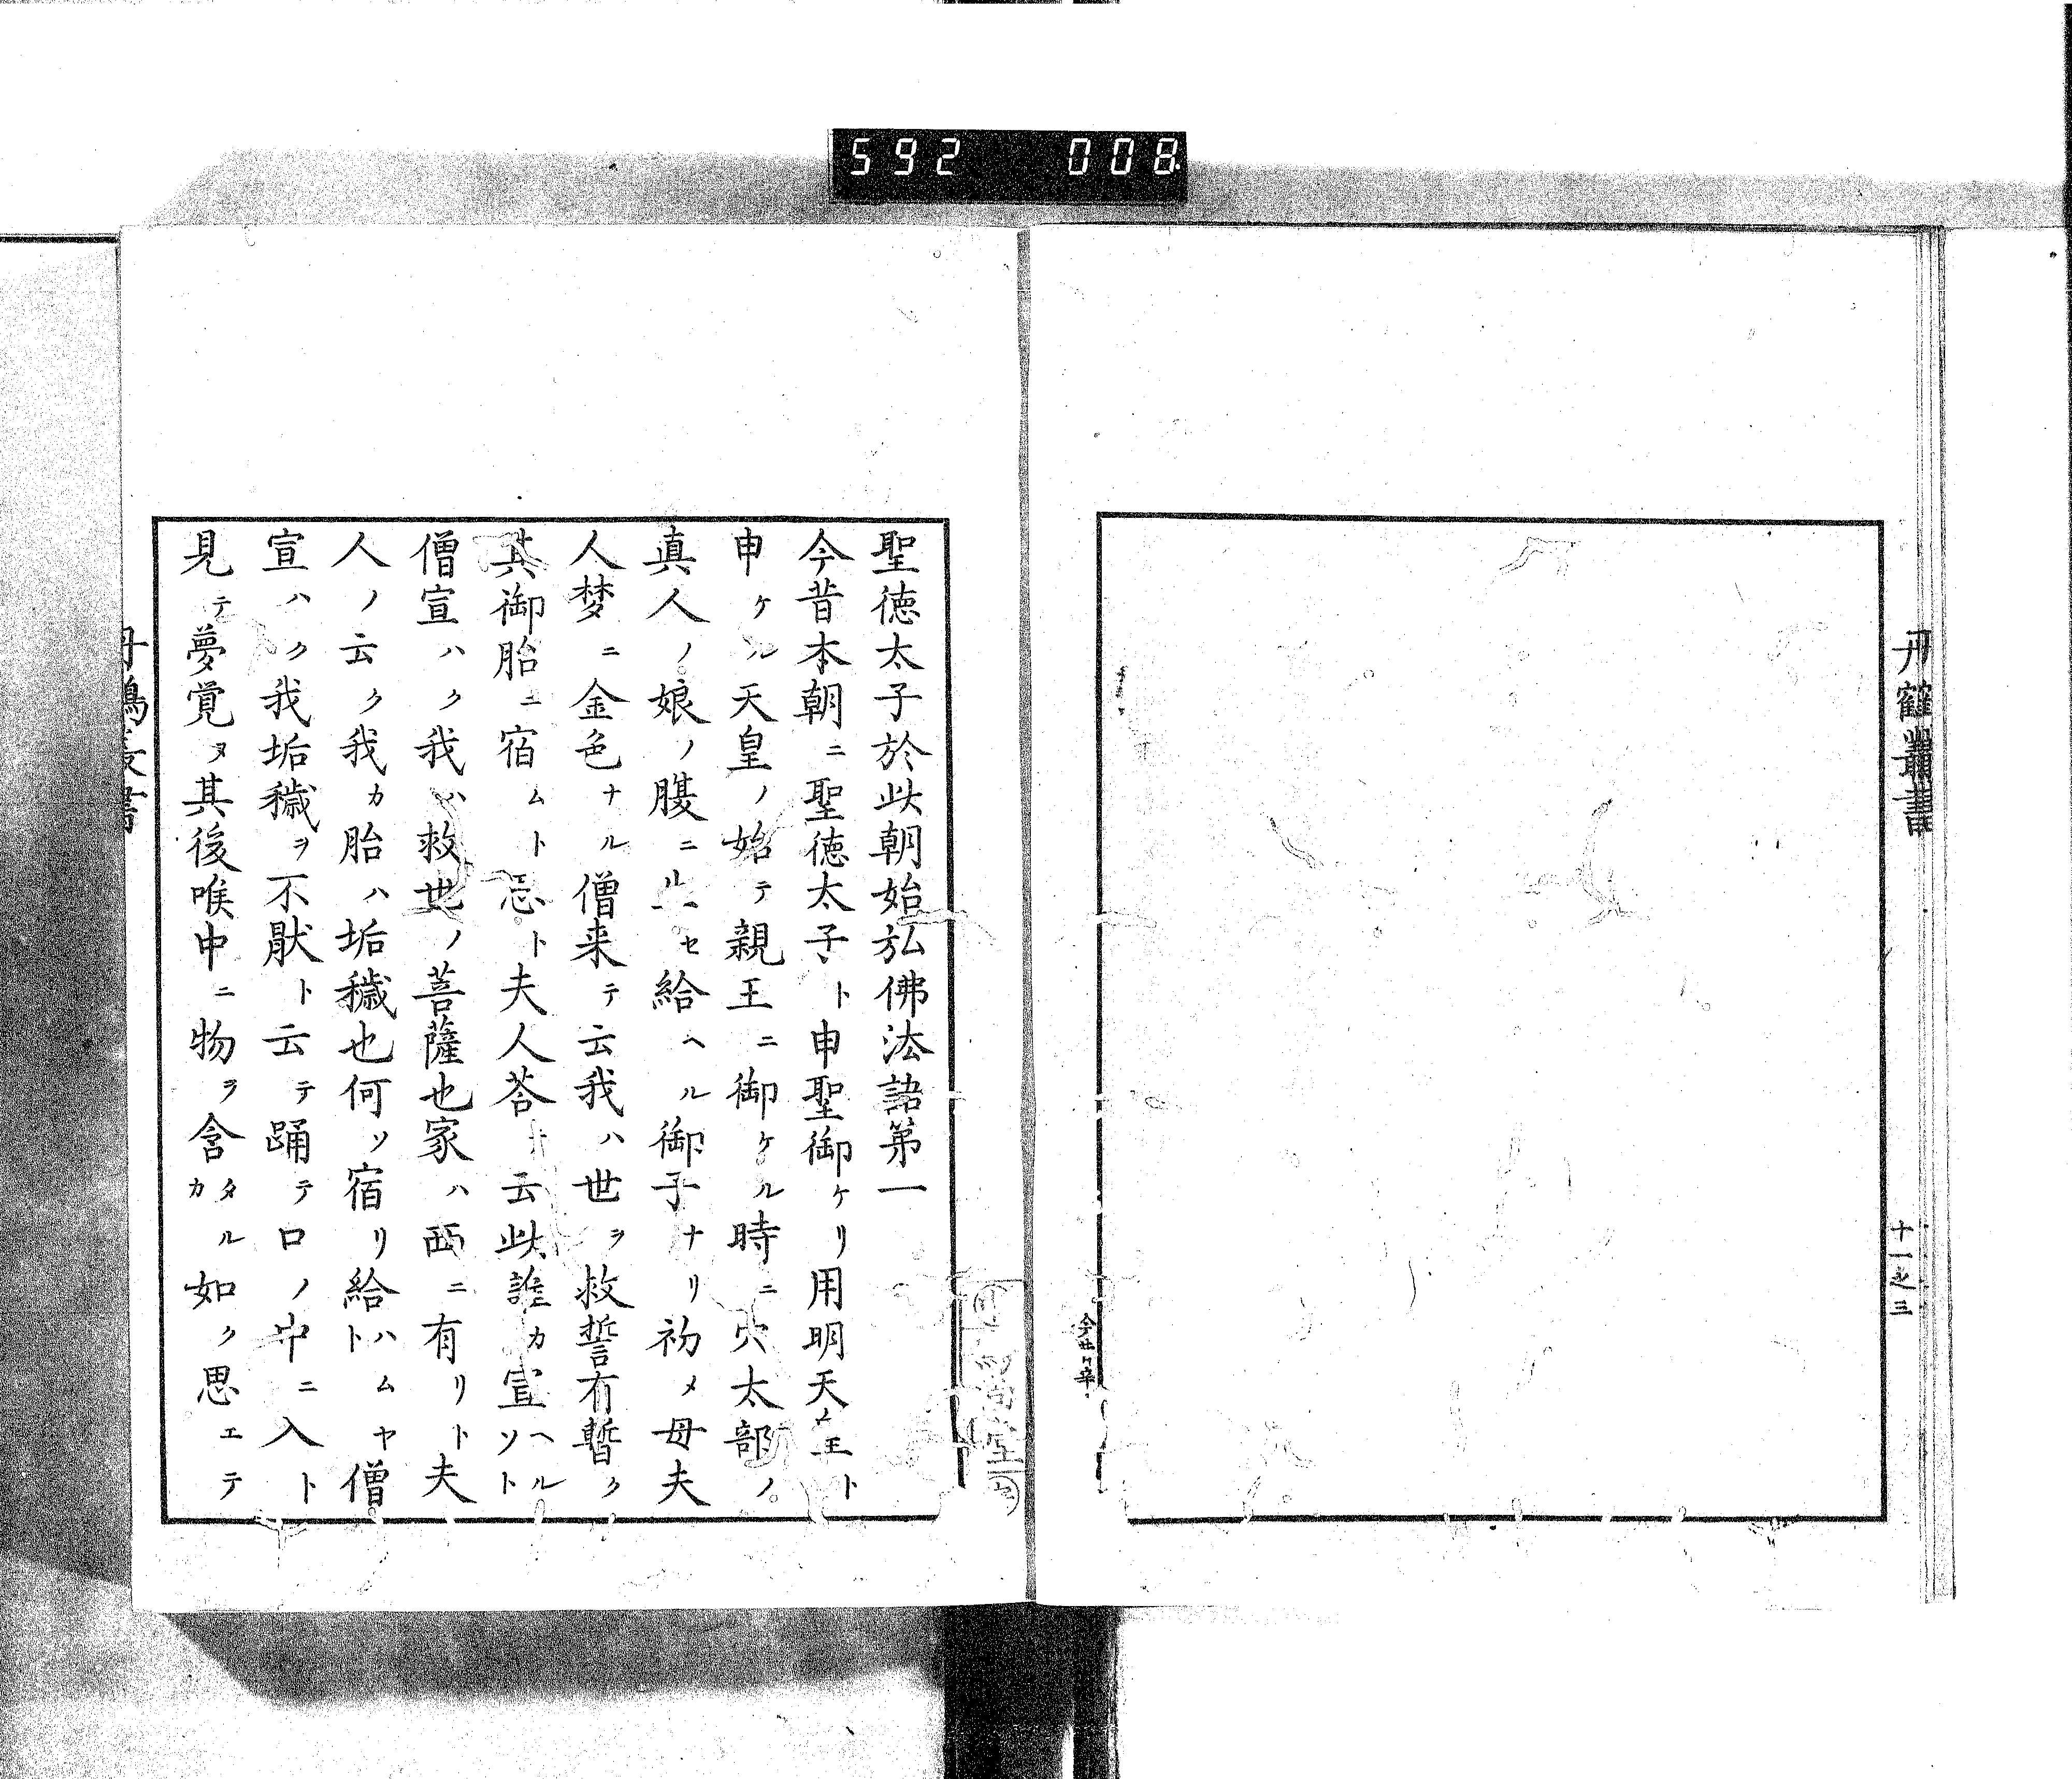 592 008
丹鶴叢書
十一之三
聖徳太子於此朝始弘佛法語第一
今昔本朝ニ聖徳太子ト申聖御ケリ用明天王ト
申ケル天皇ノ始テ親王ニ御ケル時ニ穴太部ノ
真人ノ娘ノ腹ニセ給ヘル御子ナリ初メ母夫
人梦ニ金色ナル僧来テ云我ハ世ヲ救誓有暫ク
其御胎ニ宿ムト忌ト夫人荅云此誰カ宣ヘルソト
僧宣ハク我ハ救世ノ菩薩也家ハ西ニ有リト夫
人ノ云ク我カ胎ハ垢穢也何ソ宿リ給ハムヤト僧
宣ハク我垢穢ヲ不猒ト云テ踊テ口ノ中ニ入ト
見テ夢覚ヌ其後喉中ニ物ヲ含タルカ如ク思エテ